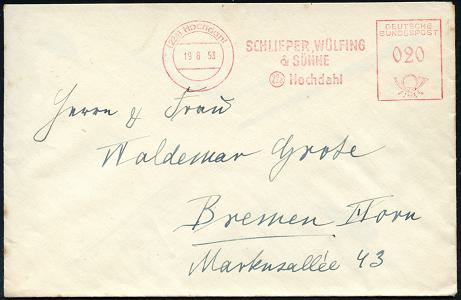 (22a) Hochdahl
19 6 53
SCHLIEPER, WÜLFING
& SÖHNE
Hochdahl
DEUTSCHE
BUNDESPOST
020
Herrn & Frau
Waldemar Grote
Bremen Horn
Markusallée 43